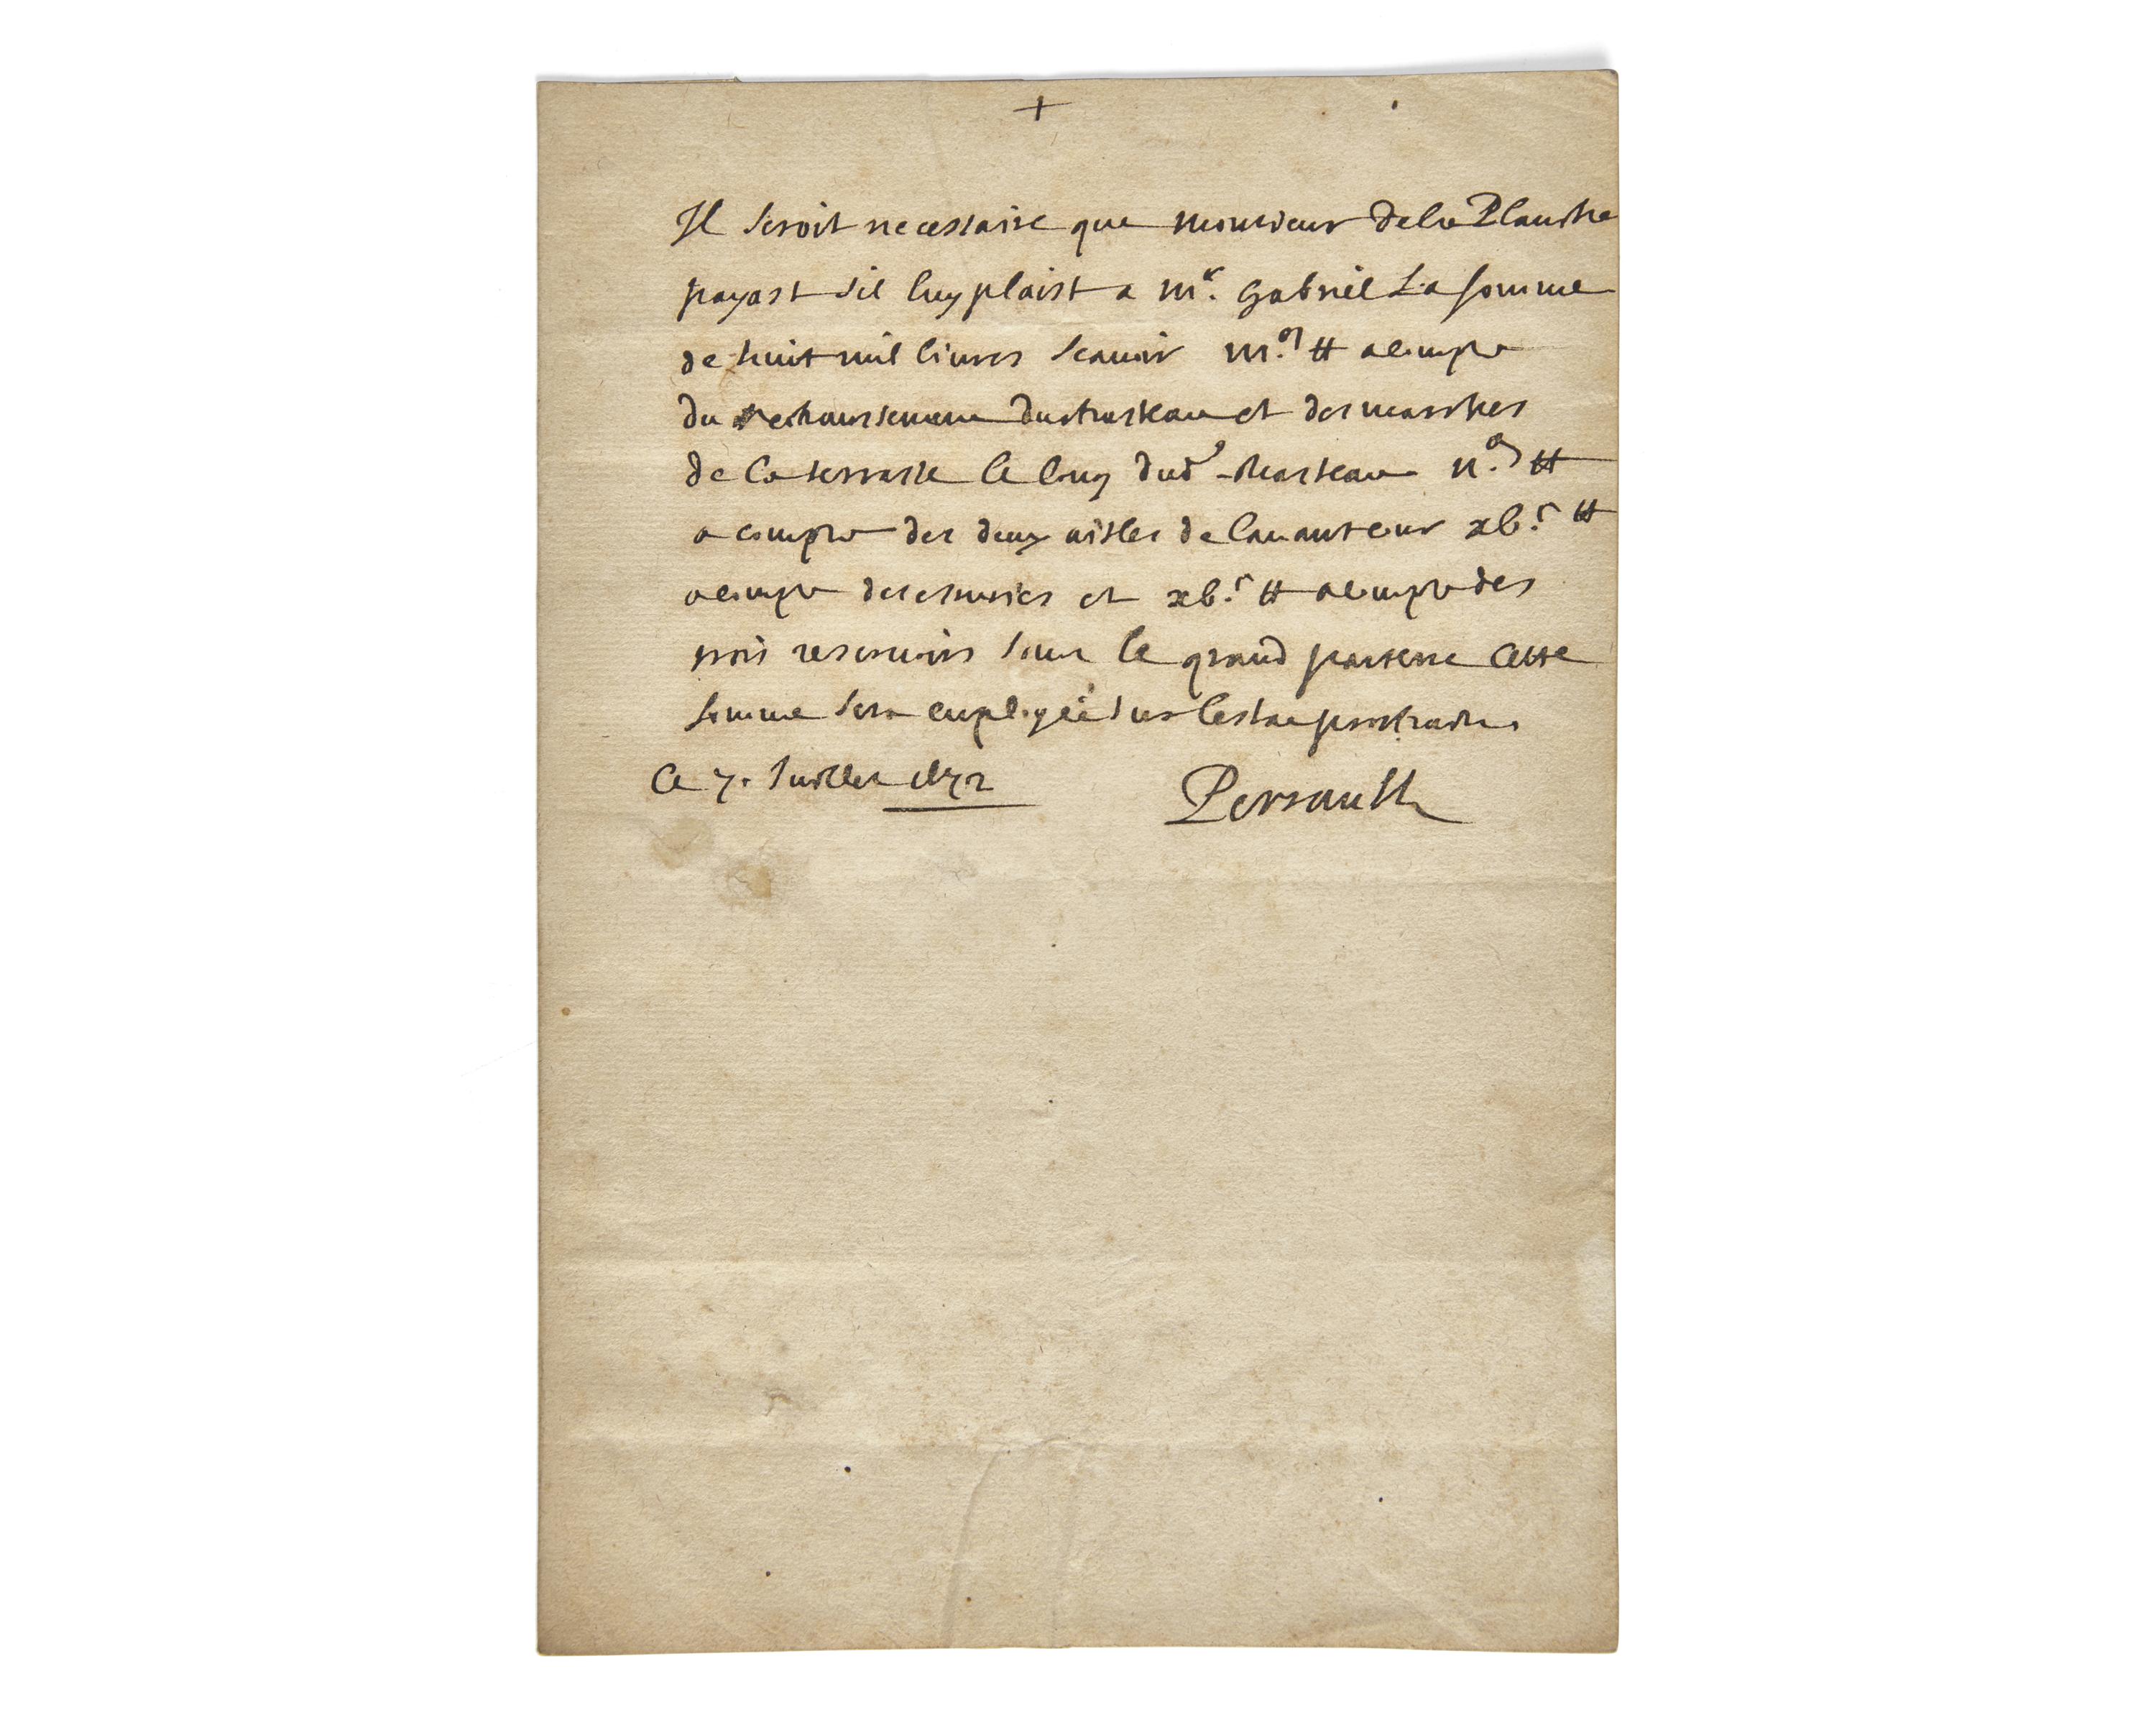 +
Il seroit necessaire que monsieur de la Planche
payast s'il luy plaist a mr. Gabriel la somme
de huit mil livres scavoir m.# a compte
du rehaussement du chasteau et des marches
de la terrasse le long dud chasteau #
a compte des deux aisles de lavantcour xv.c #
a compte des escuries et xv.c # a compte des
trois reservoirs sous le grand parterre cette
somme sera employée sur lestat prochain.
Ce 7. Juillet 1672
Perrault